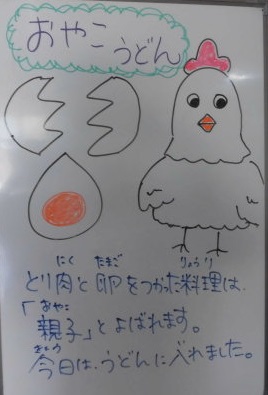 おやこ うどん
とり肉と卵をつかった料理は、
「親子」とよばれます。
今日は、うどんに入れました。
にく たまご りょうり
おやこ
きょう